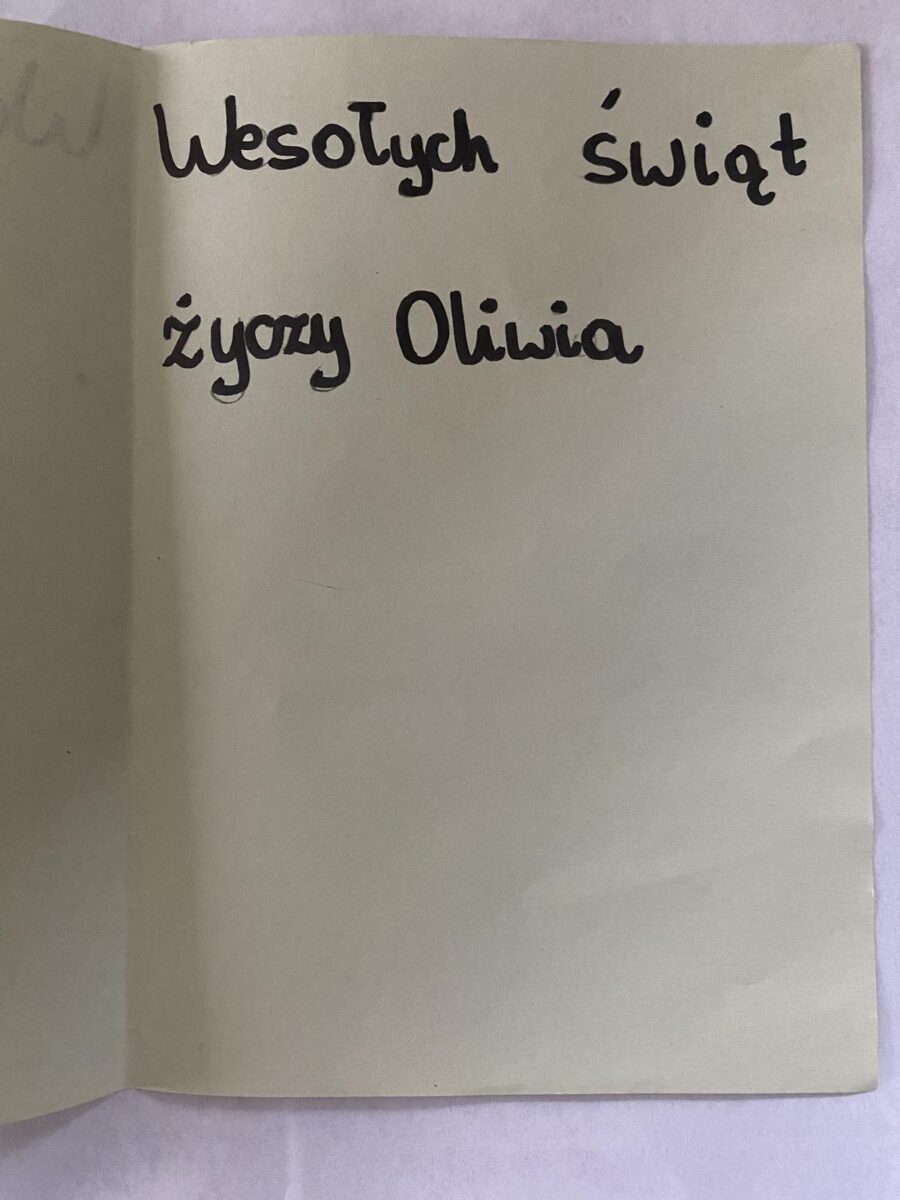 Wesołych świąt
życzy Oliwia